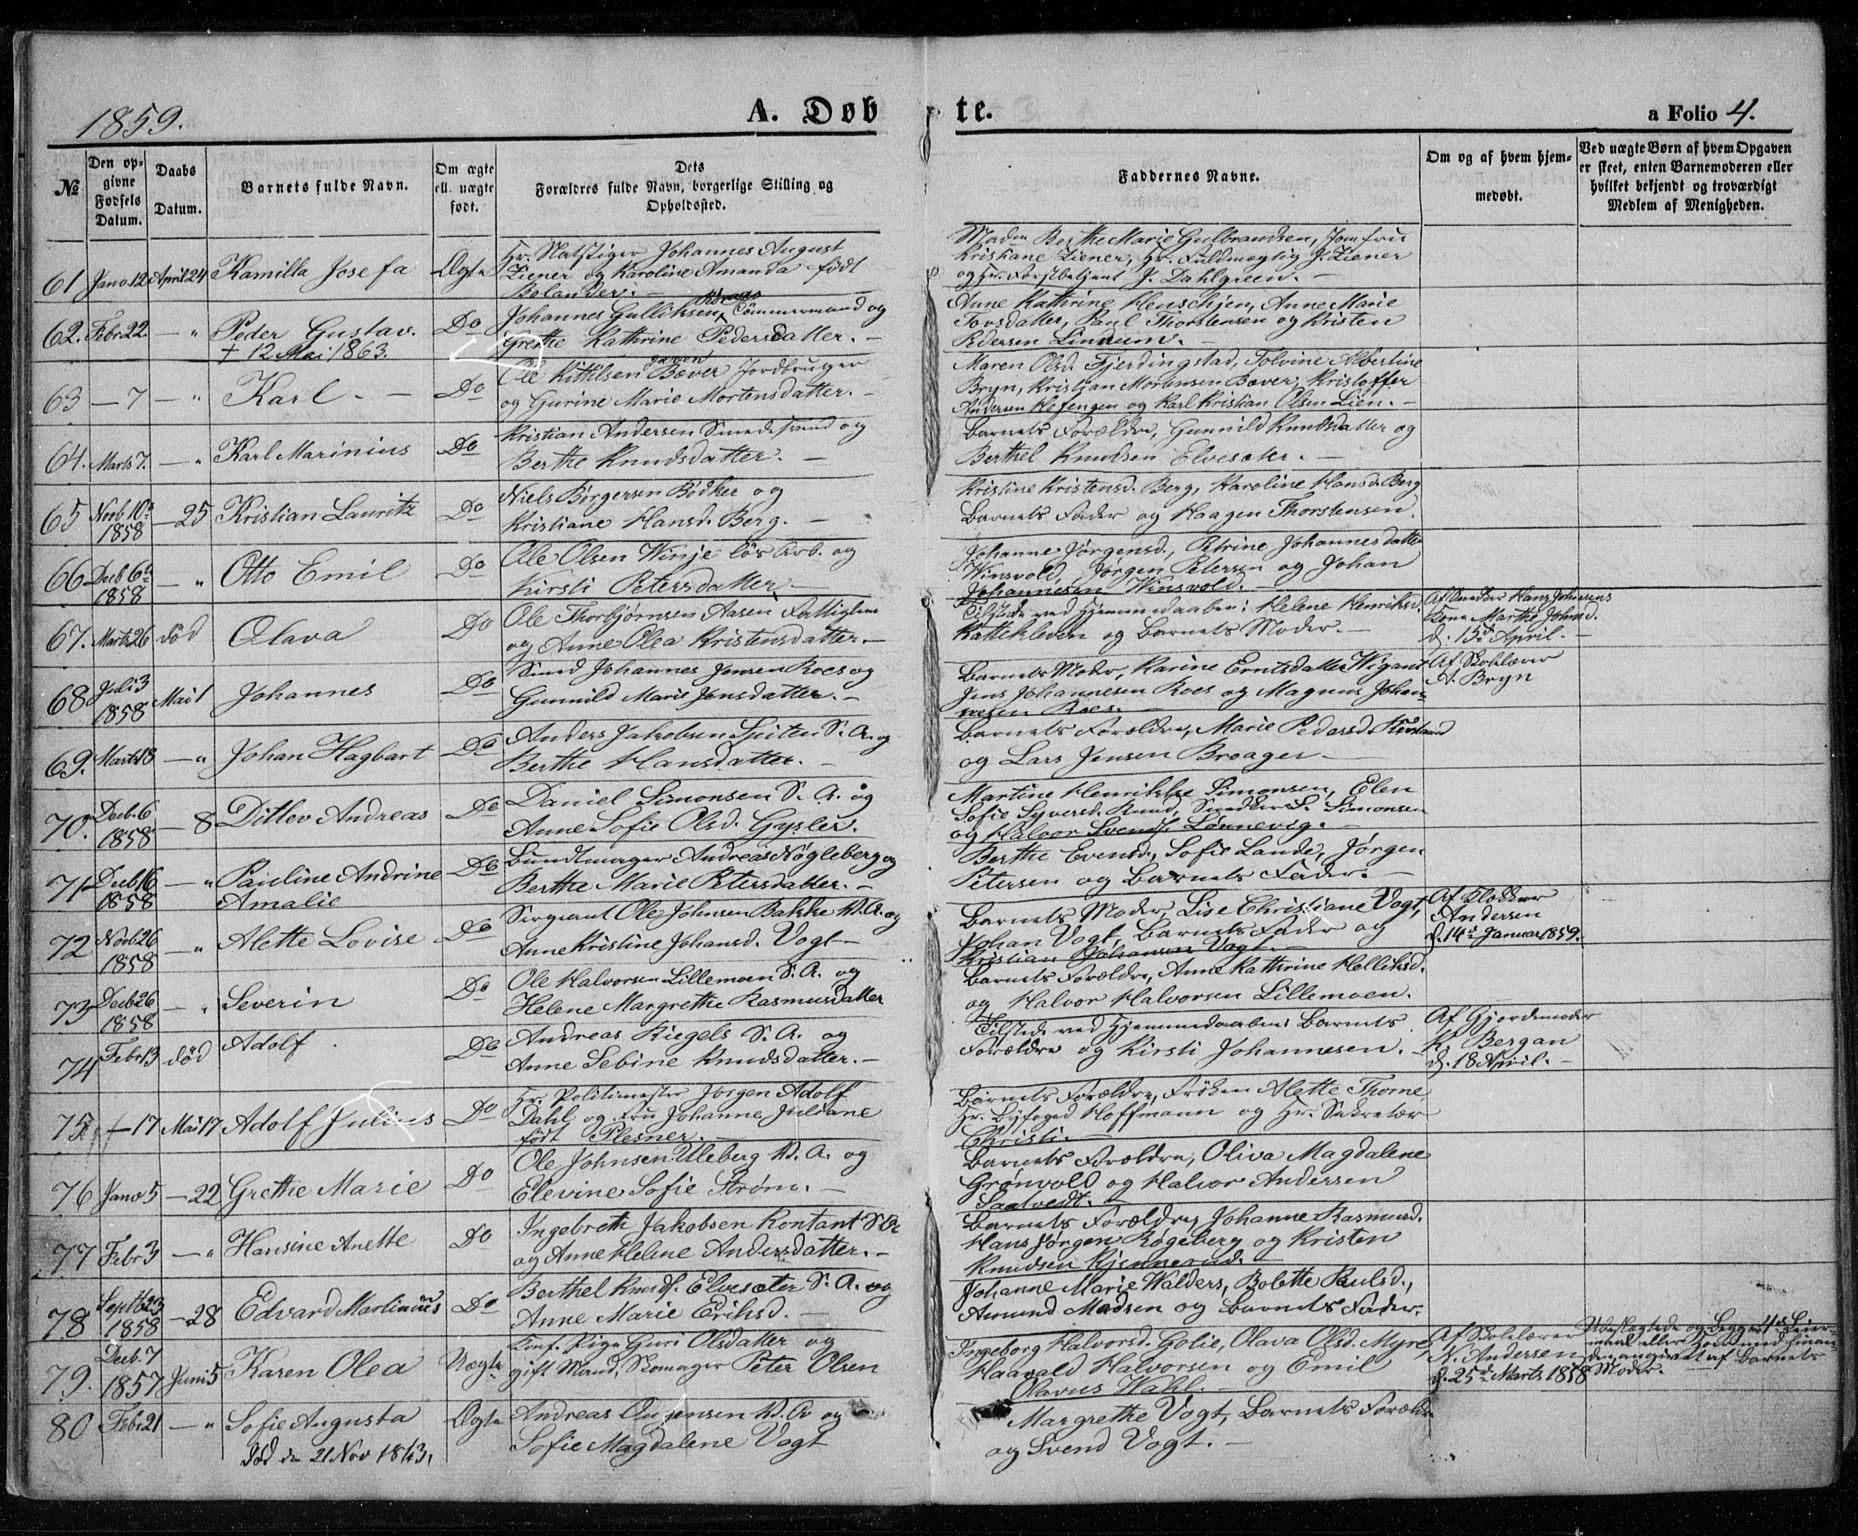 1859.
A. Døbte.
a Folio 4.
№
Den opgivne Fødsels Datum.
Daabs Datum.
Barnets fulde Navn.
Om ægte ell. uægte født.
Dets Forældres fulde Navn, borgerlige Stilling og Opholdssted.
Faddernes Navne.
Om og af hvem hjemmedøbt.
Ved uægte Børn af hvem Opgaven er skeet, enten Barnemoderen eller hvilket bekjendt og troværdigt Medlem af Menigheden.
61 Janv 12 April 24 Kamilla Josefa Ægte
Johannes August
Ziener og Karoline Amanda født
Bolander.
Madm Berthe Marie Gulbrandsen, Jomfru
Kristiane Ziener, Hr. Fuldmægtig J. Ziener
og Hr. Forstbetjent J. Dahlgreen.
62. Febr 22. — " Peder Gustav. Do
† 12 Mai 1863.
Johannes Gulliksen Tömmermand og
Grethe Kathrine Pedersdatter. —
Anne Kathrine Henschien, Anne Marie
Tovsdatter, Paul Thorstensen og Kristen
Pedersen Lindrum. —
63 — 7 — " Karl. — Do
Ole Kittilsen Bæver Jordbruger
og Gurine Marie Mortensdatter. —
Maren Olsd. Fjerdingstad, Tolvine Albertine
Bryn, Kristian Mortensen Bæver, Kristoffer
Andersen Hefengen og Karl Kristian Olsen Lien. —
64. Marts 7. — " Karl Marinius Do
Kristian Andersen Smedesvend og
Berthe Knudsdatter. —
Barnets Forældre, Gunnild Knudsdatter og
Berthel Knudsen Elvesæter. —
65 Novb 10de 1858 — 25 Kristian Lauritz Do
Niels Børgersen Bødker og
Kristiane Hansd. Berg. —
Kristine Kristensd. Berg, Karoline Hansd. Berg
Barnets Fader og Haagen Thorstensen.
66 Decb 6te 1858 — " Otto Emil Do
Ole Olsen Winje løs Arb. og
Kirsti Petersdatter
Johanne Jørgensd., Petrine Johannesdatter
Winsvold, Jørgen Petersen og Johan
Johannesen Winsvold. —
67. Marts 26 død Olava Do
Ole Thorbjørnsen Aasen Fattiglem
og Anne Olea Kristensdatter. —
Tilstede ved Hjemmedaaben: Helene Henriksd.
Kattekleven og Barnets Moder. —
Af Snedker Hans Johnsens
Kone Marthe Johnsd.
d. 15de April. —
68 Juli 3 1858 Mai 1 Johannes Do
Smed Johannes Jensen Roes og
Gunnild Marie Jensdatter. —
Barnets Moder, Karine Erntsdatter Wigant
Jens Johannesen Roes og Magnus Johannesen
Roes. —
Af Skolelærer
A. Bryn
69. Marts 18 — " Johan Hagbart Do
Anders Jakobsen S. A. og
Berthe Hansdatter. —
Barnets Forældre, Marie Pedersd.
og Lars Jensen Broager. —
70. Decb 6 1858 — 8 Ditlev Andreas Do
Daniel Simonsen S. A. og
Anne Sofie Olsd. Gysler.
Martine Henrikke Simonsen, Elen
Sofie Syversd. Rund, Snedker S. Simonsen
og Halvor Svends. Lønnevig. —
71 Decb 16 1858 — " Pauline Andrine Amalie Do
Bundtmager Andreas Nøgleberg og
Berthe Marie Petersdatter. —
Berthe Evensd., Sofie Lande, Jørgen
Petersen og Barnets Fader. —
72 Novb 26 1858 — " Alette Lovise Do
Sergeant Ole Johnsen Bakke V. A. og
Anne Kristine Johansd. Vogt —
Barnets Moder, Lise Christiane Vogt,
Johan Vogt, Barnets Fader og
Kristian Johansen Vogt. —
Af Klokker
Andersen
d. 14de Januar 1859.
73 Decb 26 1858 — " Severin Do
Ole Halvorsen Lillemoen S. A. og
Helene Margrethe Rasmusdatter
Barnets Forældre, Anne Kathrine Helliksd.
og Halvor Halvorsen Lillemoen.
74 Febr 13 død Adolf. Do
Andreas Riegels S. A. og
Anne Sebine Knudsdatter. —
Tilstede ved Hjemmedaaben: Barnets
Forældre og Kirsti Johannesen. —
Af Gjordemoder
K. Bergan
d. 18 April. —
75. — 17 Mai 17 Adolf Julius Do
Hr. Politimester Jørgen Adolf
Dahl og Fru Johanne Juliane
født Plesner. —
Barnets Forældre, Frøken Alette Thorne
Hr. Byfoged Hoffmann og Hr. Sekretær
Christi. —
76 Janv 5 — 22 Grethe Marie Do
Ole Johnsen Uleberg V. A. og
Elevine Sofie Strøm. —
Barnets Forældre, Oliva Magdalene
Grønvold og Halvor Andersen
Saatvedt. —
77 Febr 3 — " Hansine Anette Do
Ingebreth Jakobsen Kontant S. A.
og Anne Helene Andersdatter. —
Barnets Forældre, Johanne Rasmusd.
Hans Jørgen Røgeberg og Kristen
Knudsen Kjennerud. —
78 Septb 23 1858 — 28 Edvard Martinius Do
Berthel Knuds. Elvesæter S. A. og
Anne Marie Eriksd. —
Johanne Marie Walders, Bolette Paulsd.,
Amund Madsen og Barnets Fader.
79. Decb. 7 1857 Juni 5 Karen Olea Uægte
Konf. Pige Guri Olsdatter og
gift Mand, Skomager Peter Olsen
Ingeborg Halvorsd. Golie, Olava Olsd. Myre,
Haavald Halvorsen og Emil
Olavus Wahl. —
Af Skolelærer
N. Andersen
d. 25de Marts 1858
Ubeslægtede og begges
angivet af Barnets
Moder.
80 Febr 21 — " Sofie Augusta Ægte
Død den 21 Nov 1863.
Andreas V. A. og
Sofie Magdalene Vogt
Margrethe Vogt, Barnets Forældre
og Svend Vogt. —